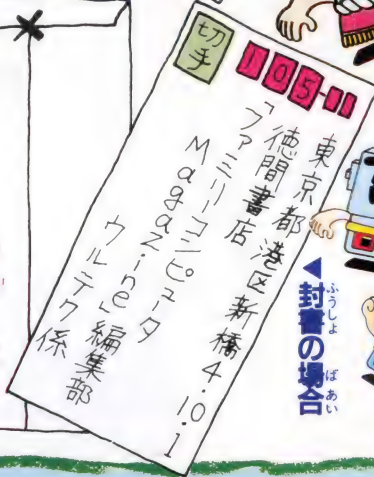 切手
105-
東京都港区新橋4・10・1
徳間書店
「ファミリーコンピュータ
Magazine」編集部
ウルテク係
◀封書の場合
ふうしょ ばあい